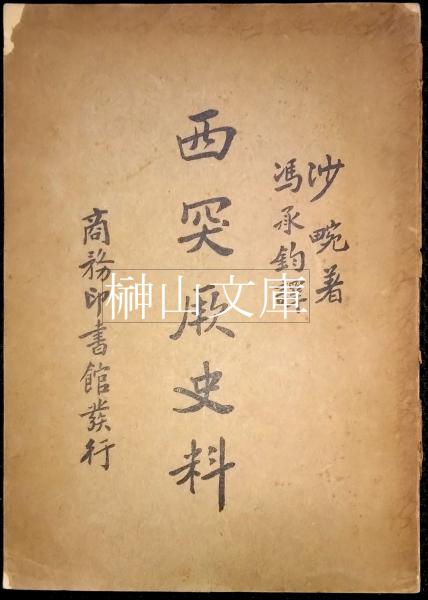 沙畹著
馮承鈞譯
西突厥史料
商務印書館發行
榊山文庫